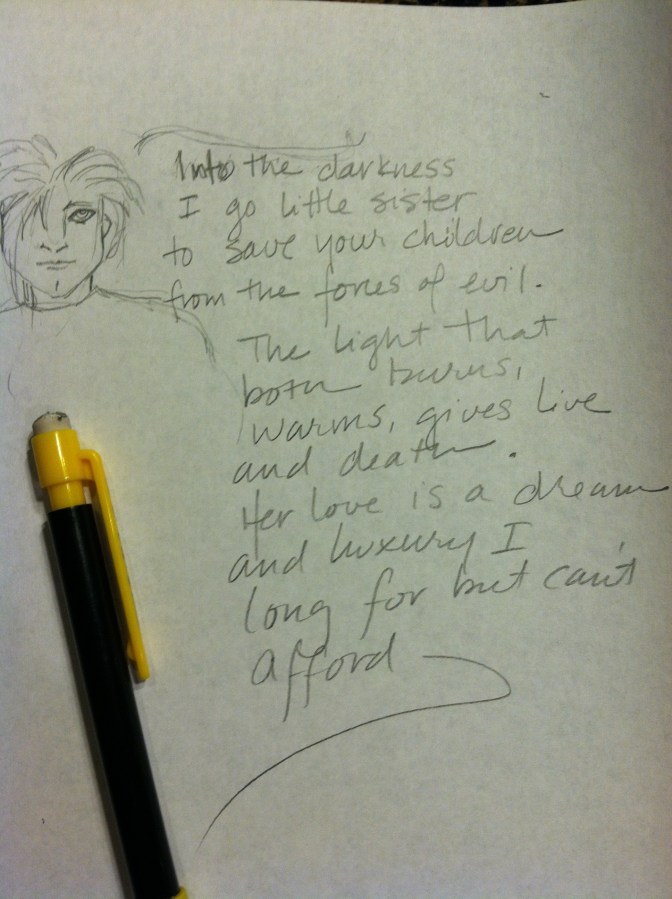 Into the darkness
I go little sister
to save your children
from the forces of evil.
The light that
both burns,
warms, gives live
and death.
Her love is a dream
and luxury I
long for but can't
afford